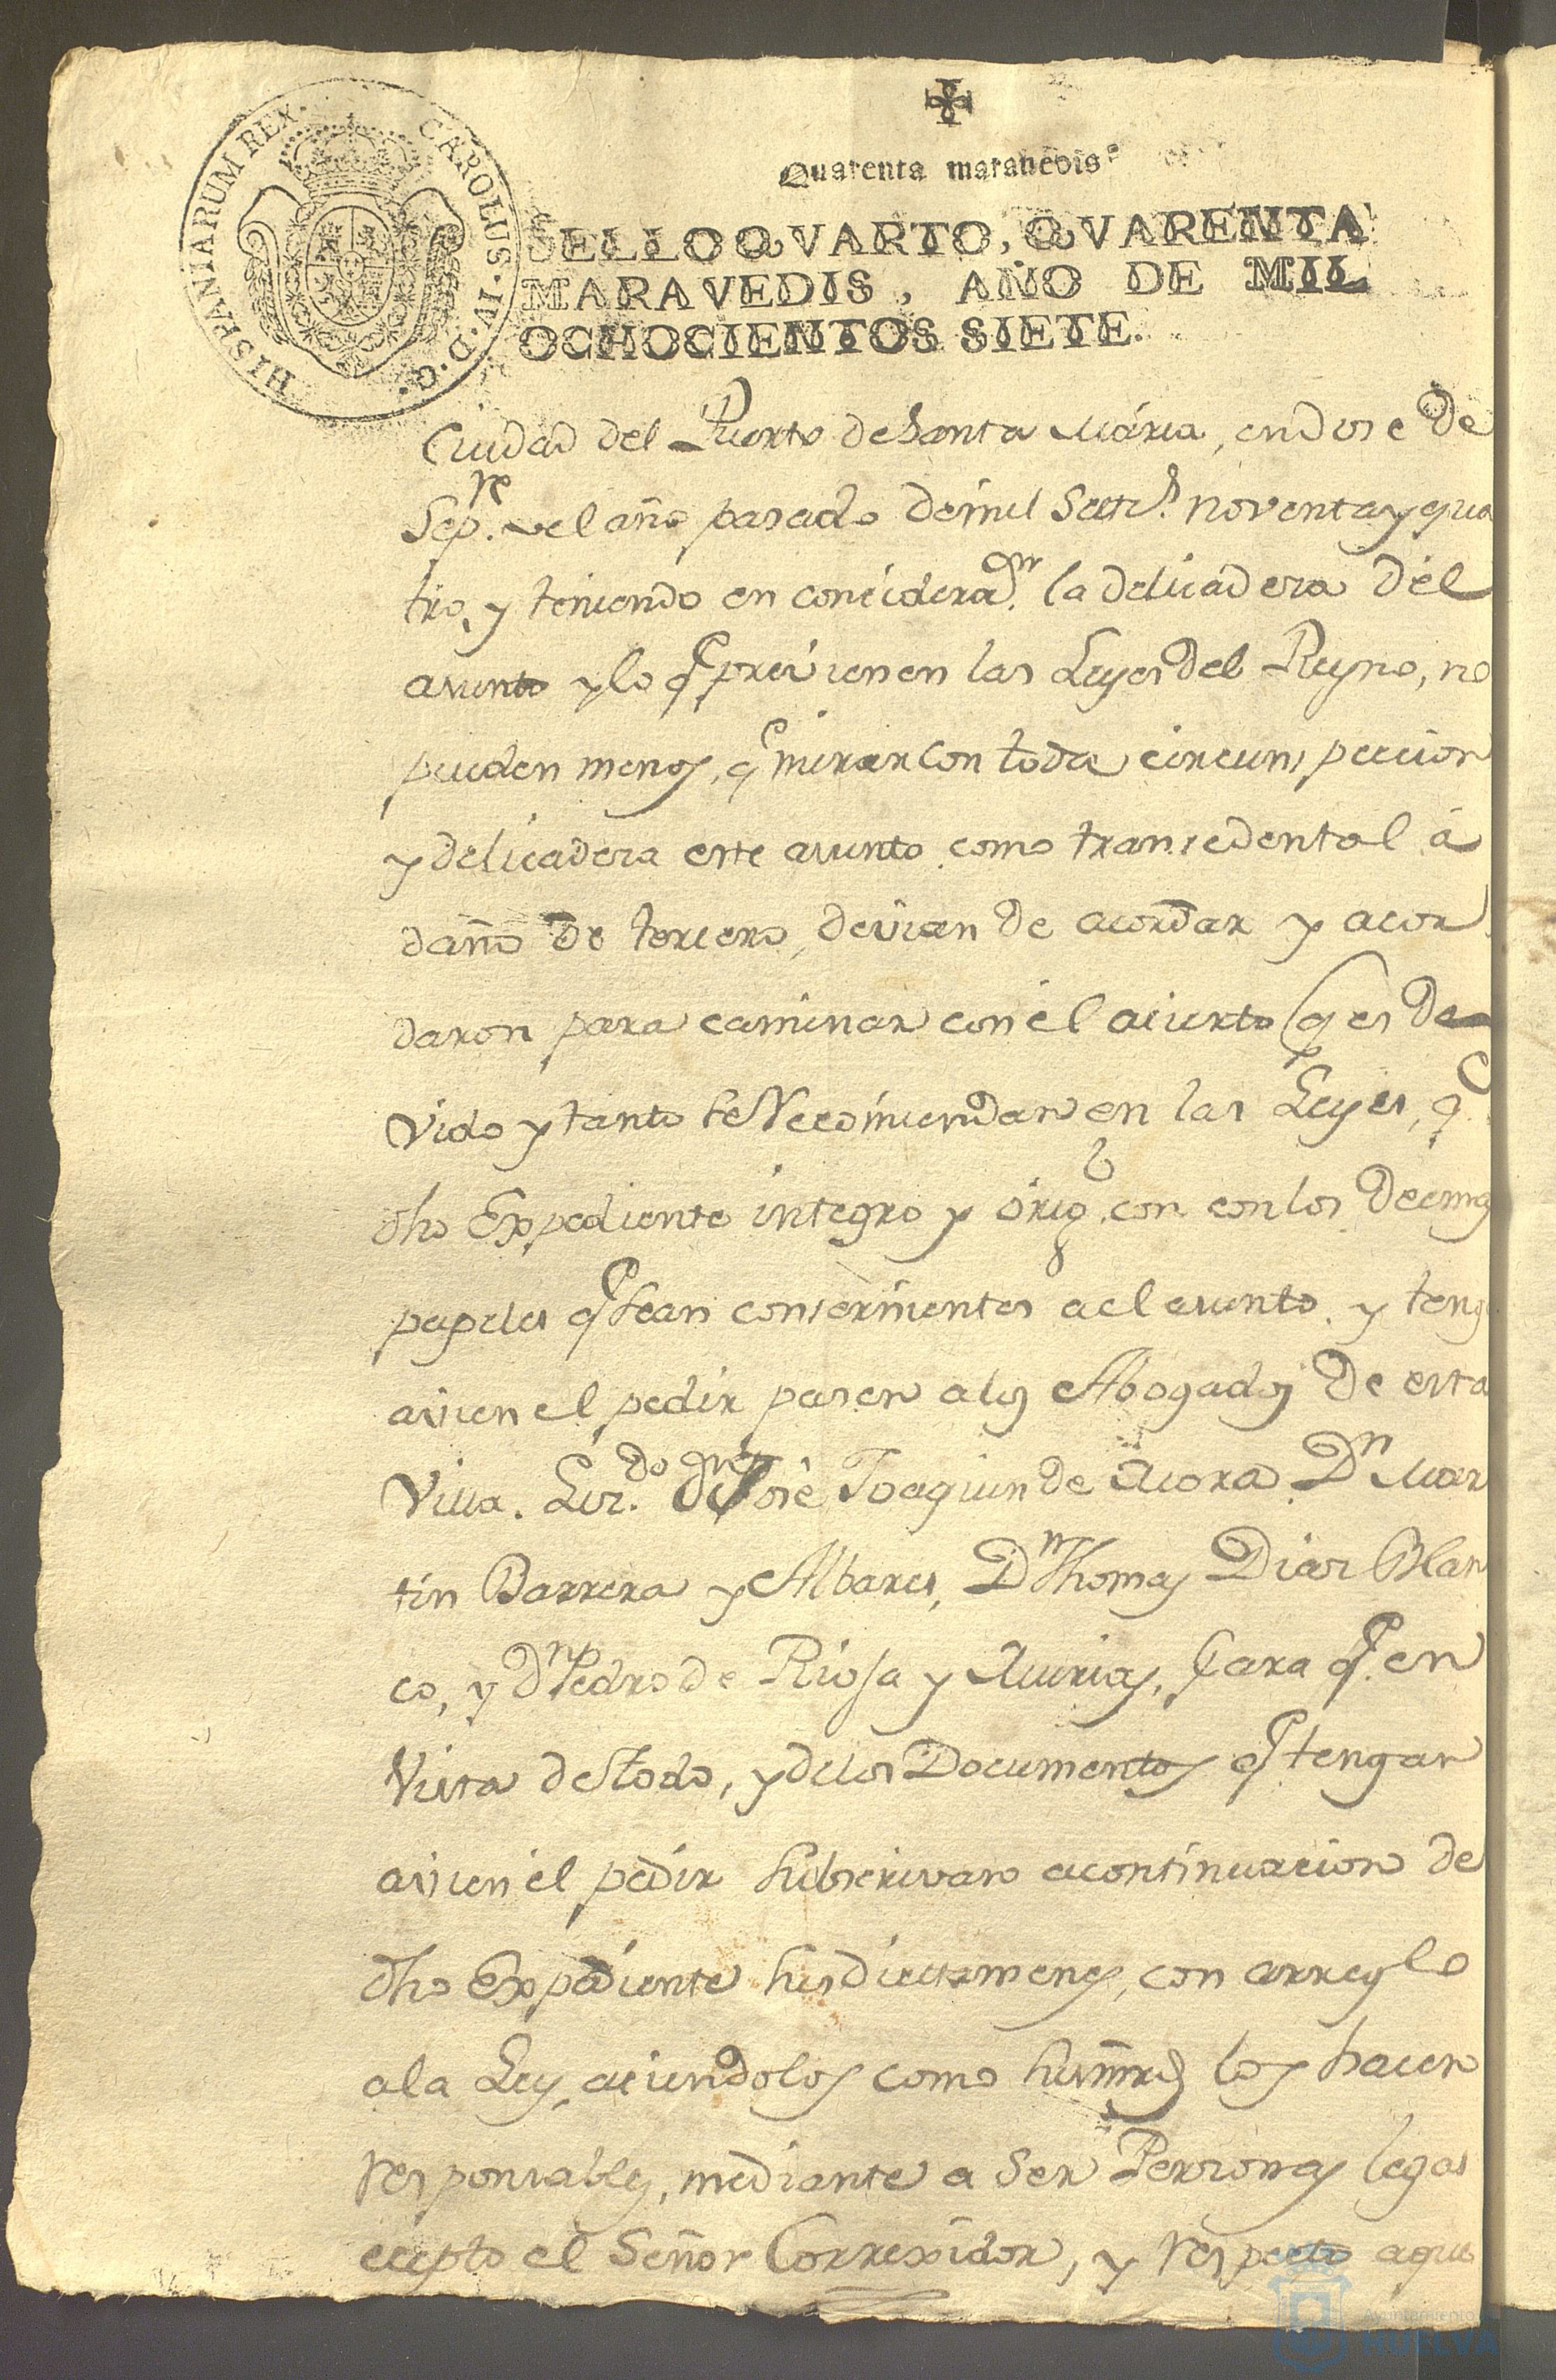 HISPANIARUM REX. CAROLUS. IV. D. G.
Quarenta marauedis.
SELLO QVARTO, QVARENTA
MARAVEDIS, AÑO DE MIL
OCHOCIENTOS SIETE.
Ciudad del Puerto de Santa Maria, en dose de
Sepre. del año pasado de mil Setts. noventa y qua
tro, y teniendo en concideraon. la delicadeza del
asunto y lo qe previenen las Leyes del Reyno, no
pueden menos, qe mirar con toda circunspeccion
y delicadeza este asunto como transedental á
daño de tercero, devian de acordar y acor
daron para caminar con el acierto (qe es de
vido y tanto se Recomiendan en las Leyes, qe
dho Expediente integro y origl. con con los demas
papeles qe sean consernientes a el asunto. y teng
a vien el pedir pasen a los Abogados de esta
Villa. Lizdo. Jose Joaquin de Mora Dn Mar
tin Barrera y Albares, Dn Thomas Diaz Blan
co, y Dn Pedro de Rioja y Murias, para qe en
Vista de todo, y de los Documentos qe tengan
a vien el pedir subscrivan a continuacion de
dho Expediente sus dictamenes, con arreglo
a la Ley, aciendolos como sus mrds los hacen
Responsables, mediante a Ser Personas legas
ecepto el Señor Correxidor, y Respecto a que
Ayuntamiento de
HUELVA